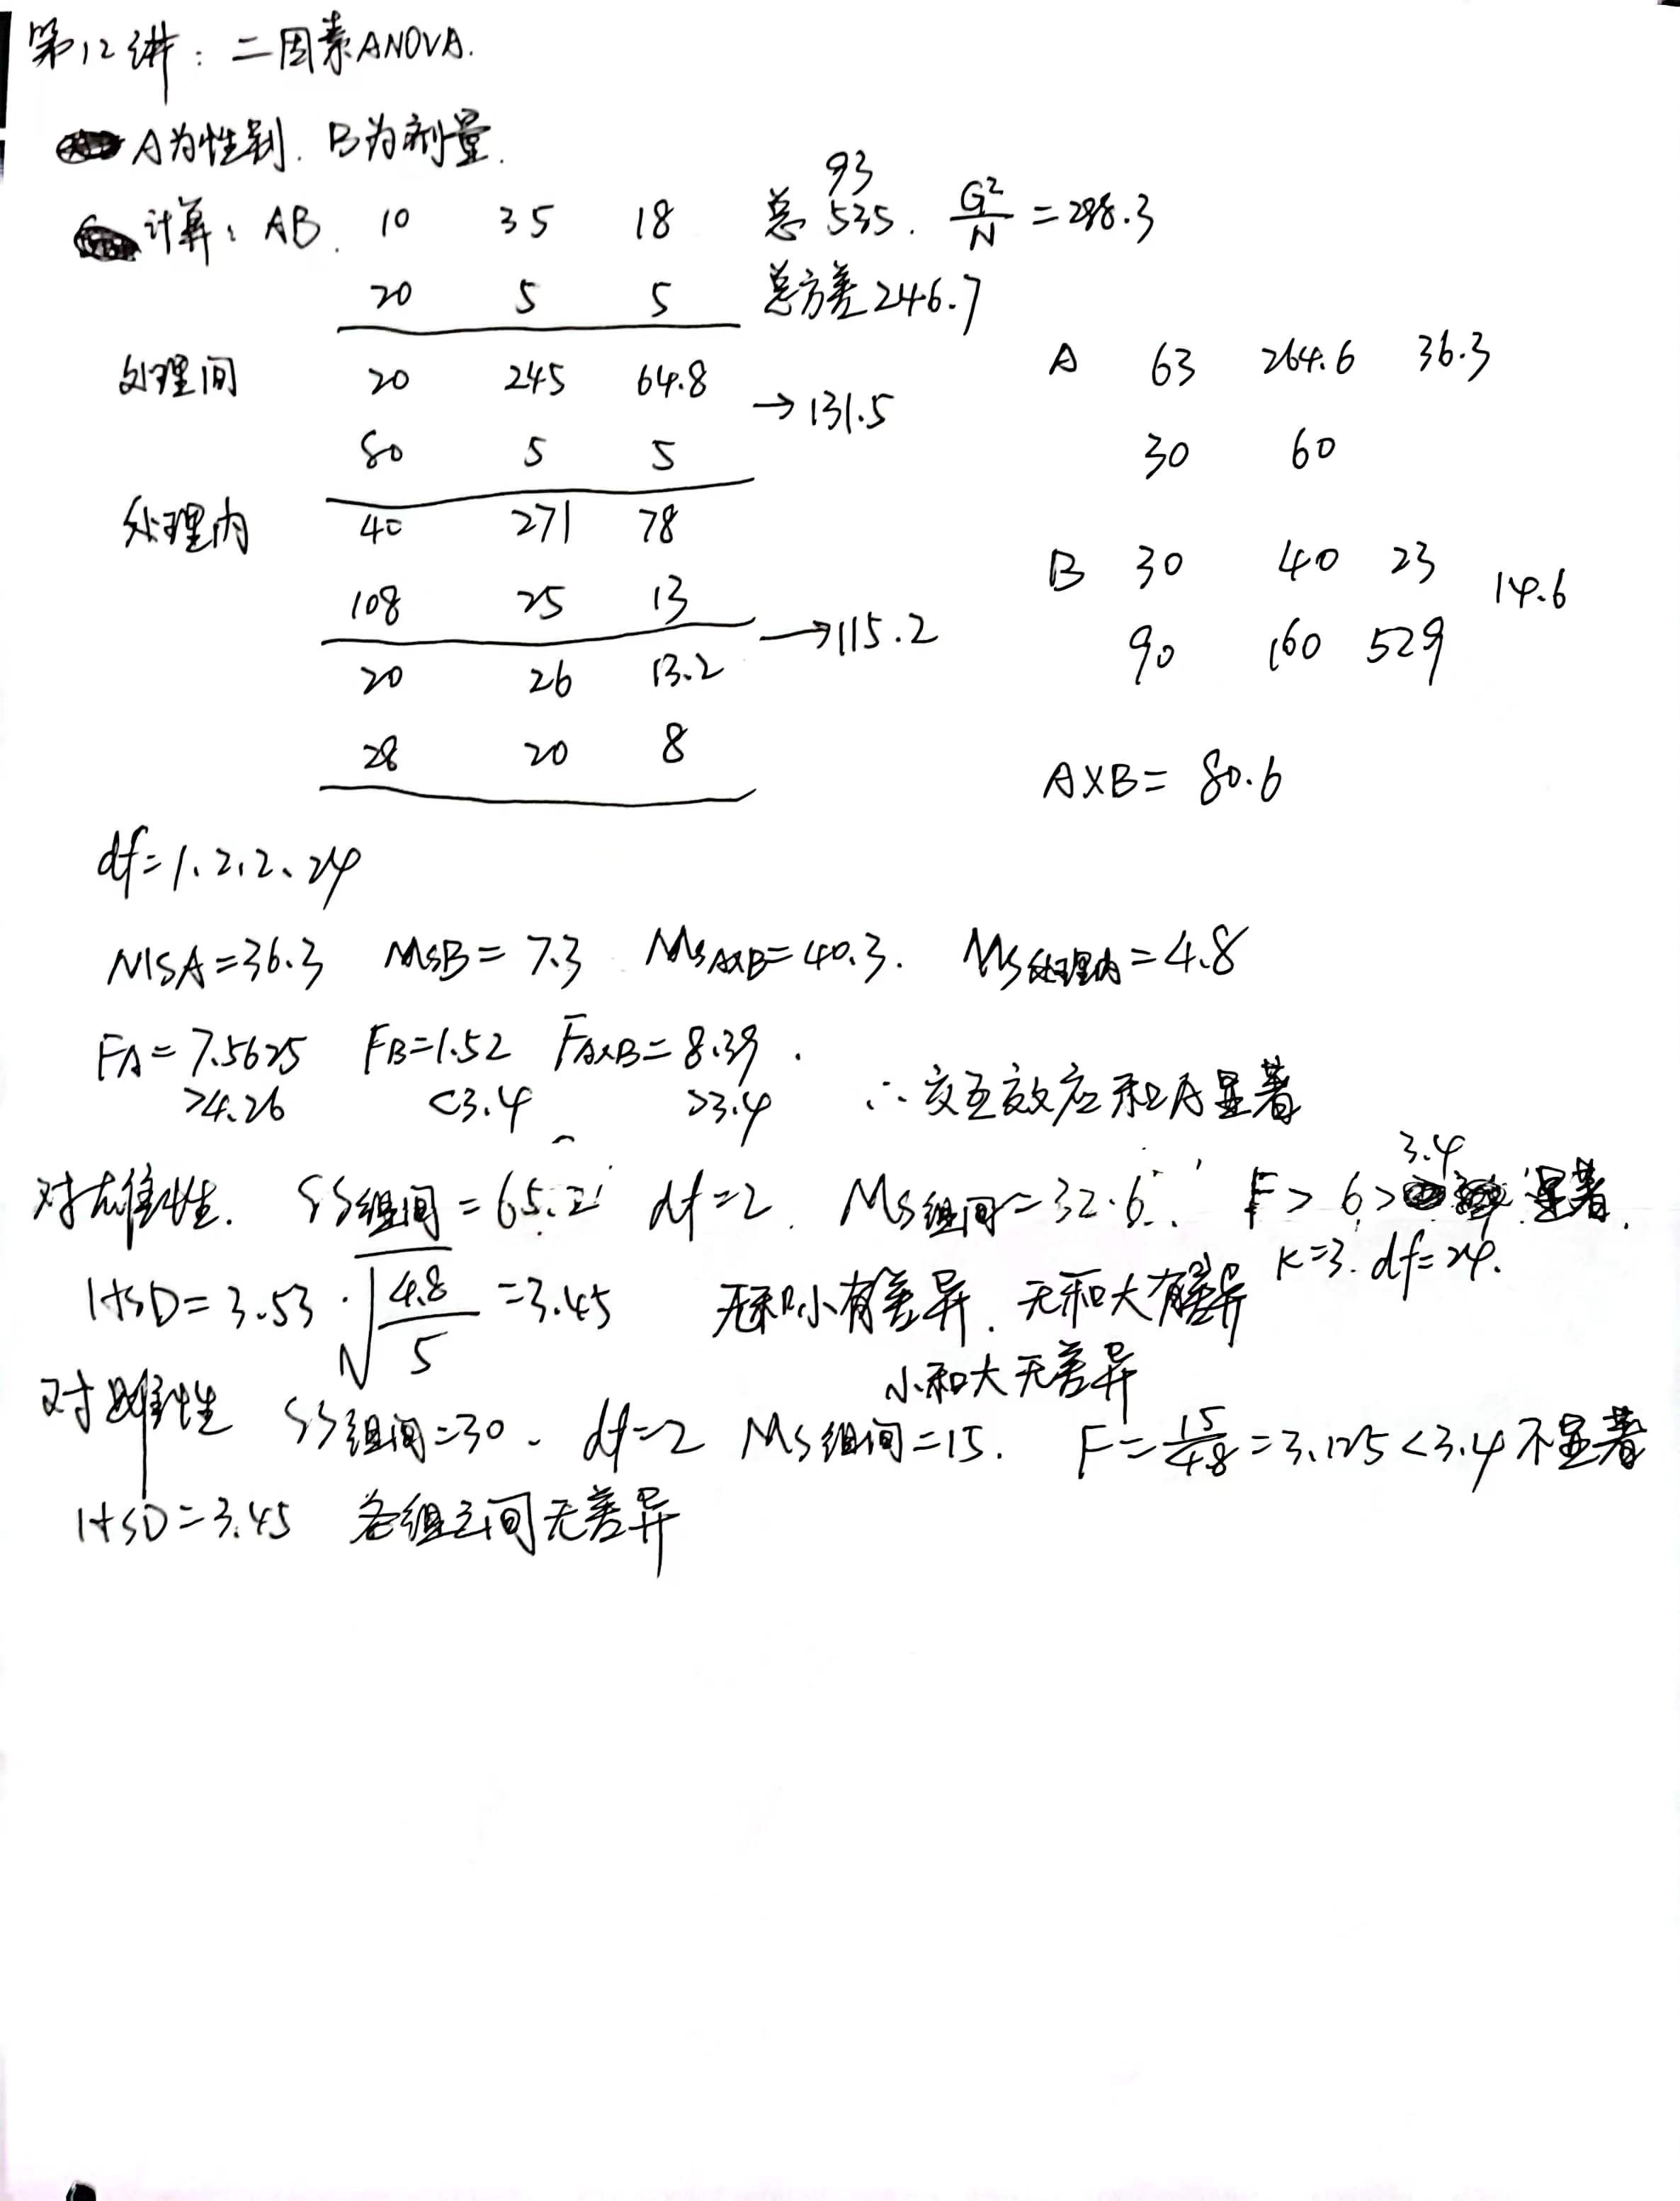 第12讲：二因素ANOVA.
A为性别. B为剂量.
计算：AB. 10 35 18 总 93 535. G²/N = 288.3
20 5 5 总方差246.7
处理间 20 245 64.8 →131.5
80 5 5
处理内 40 271 78
108 25 13 →115.2
20 26 13.2
28 20 8
A 63 264.6 36.3
30 60
B 30 40 23 14.6
90 160 529
A×B= 80.6
df=1、2、2、24
MSA=36.3 MSB=7.3 MSA×B=40.3. MS处理内=4.8
FA=7.5625 FB=1.52 FA×B=8.39.
>4.26 <3.4 >3.4 ∴交互效应和A显著
对雄性. SS组间=65.2 df=2. MS组间=32.6 F> 6>3.4 显著.
K=3. df=24.
HSD=3.53·√4.8/5=3.45 无和小有差异. 无和大有差异
小和大无差异
对雌性 SS组间=30. df=2 MS组间=15. F=15/4.8=3.125<3.4不显著
HSD=3.45 各组之间无差异